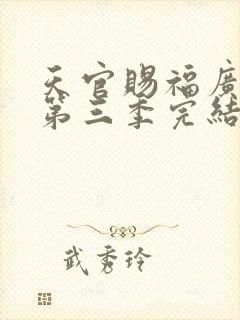 天官賜福廣
第三季完結
武秀玲